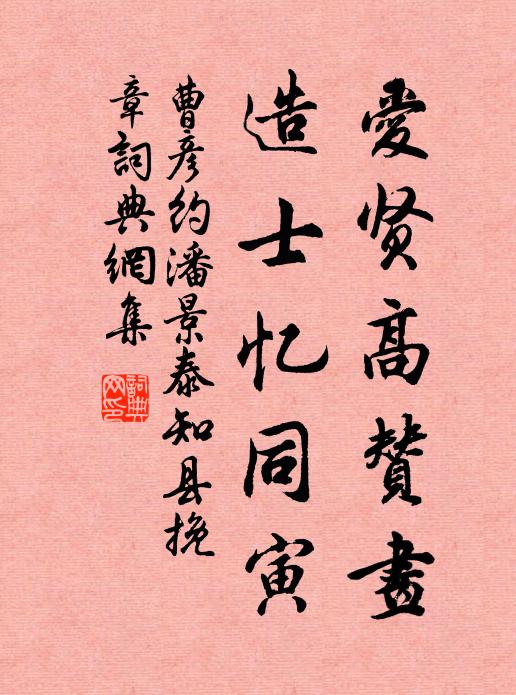 愛贤高赞畫
造士忆同寅
曹彦约潘景泰知县挽
章詞典網集
詞典
网印